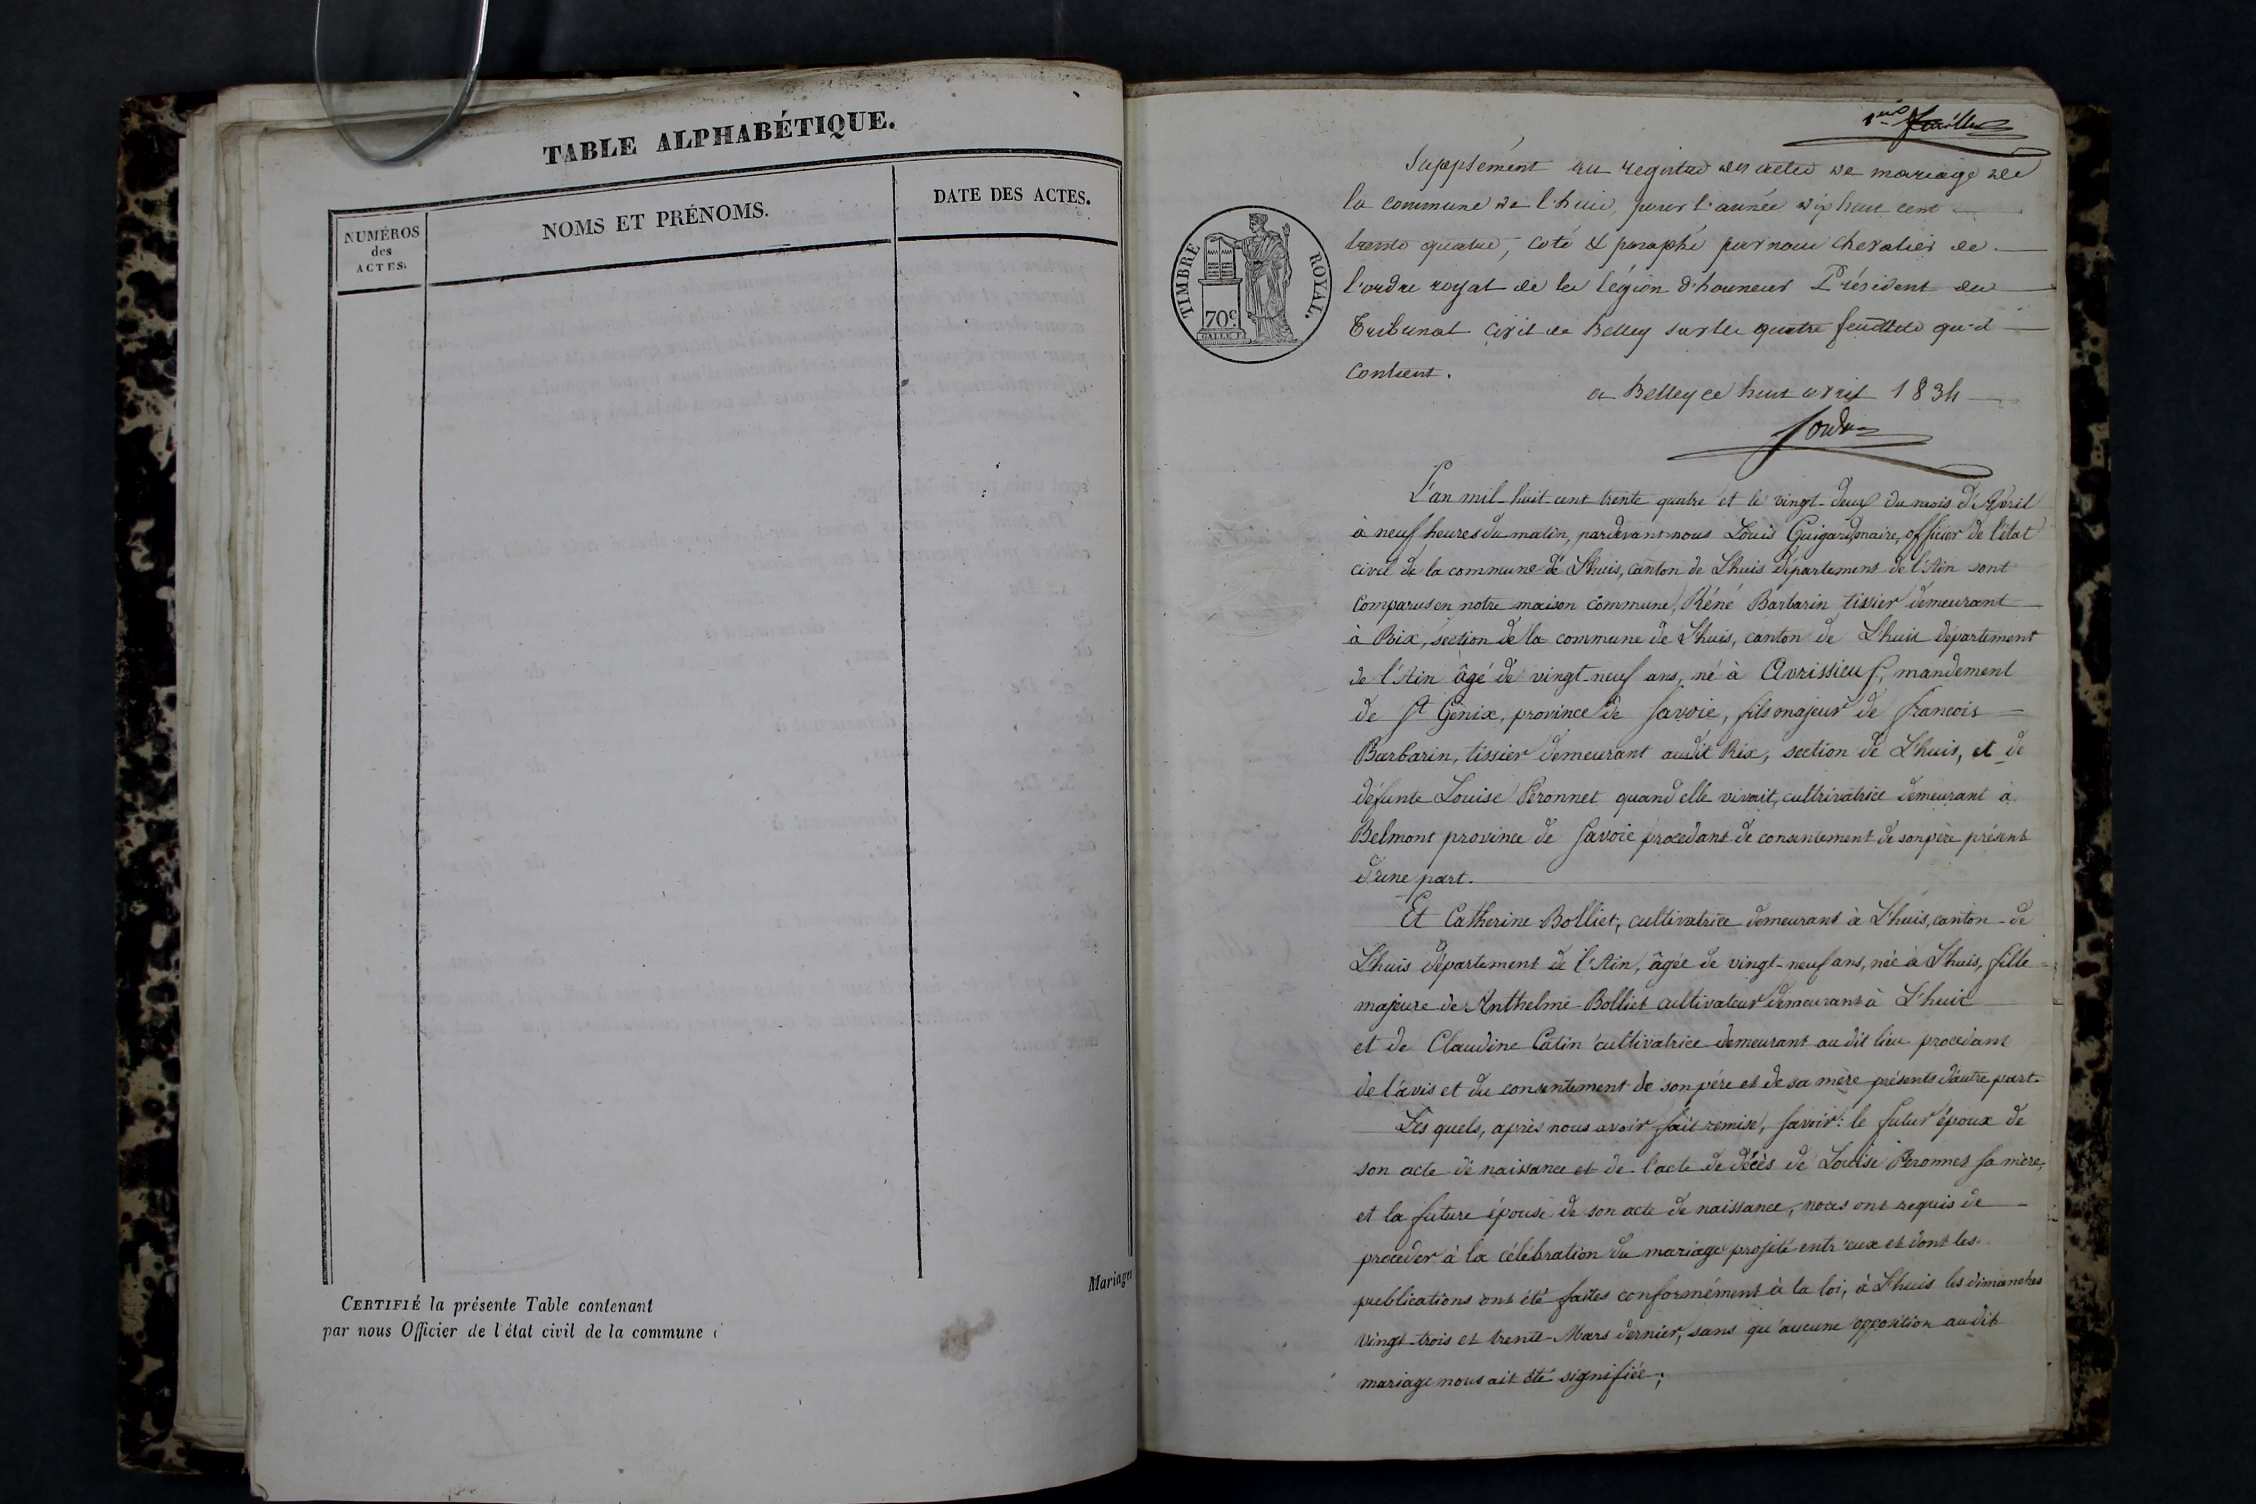 TABLE ALPHABÉTIQUE.
NUMÉROS
des
ACTES.
NOMS ET PRÉNOMS.
DATE DES ACTES.
CERTIFIÉ la présente Table contenant
par nous Officier de l'état civil de la commune
Mariages
1er feuillet
Supplément au registre des actes de mariage de
la commune de l'huis, pour l'année dix huit cent
trente quatre, coté & paraphé par nous chevalier de
l'ordre royal de la légion d'honneur Président du
Tribunal civil de Belley sur les quatre feuillets qu'il
contient.
a Belley ce huit avril 1834
TIMBRE ROYAL.
70c.
L'an mil-huit cent trente quatre et le vingt-deux du mois d'Avril
à neuf heures du matin, pardevant nous Louis Guigard, maire, officier de l'état
civil de la commune de Lhuis, canton de Lhuis département de l'Ain sont
comparus en notre maison commune, Réné Barbarin tissier demeurant
à Rix, section de la commune de Lhuis, canton de Lhuis département
de l'Ain âgé de vingt-neuf ans, né à Avrissieuf, mandement
de St Genix, province de Savoie, fils majeur de francois
Barbarin, tissier demeurant audit Rix, section de Lhuis, et de
défunte Louise Peronnet quand elle vivait, cultrivatrice demeurant à
Belmont province de Savoie procedant de consentement de son père présent
d'une part.
Et Catherine Bolliet, cultivatrice demeurant à Lhuis, canton de
Lhuis département de l'Ain, âgée de vingt-neuf ans, née à Lhuis, fille
majeure de Anthelme Bolliet cultivateur demeurant à L'huis
et de Claudine Catin cultivatrice demeurant au dit lieu procedant
de l'avis et du consentement de son père et de sa mère présents d'autre part.
Les quels, après nous avoir fait remise, savoir: le futur époux de
son acte de naissance et de l'acte de décès de Louise Peronnet sa mère,
et la future épouse de son acte de naissance, nous ont requis de
proceder à la célébration du mariage projeté entr'eux et dont les
publications ont été faites conformément à la loi, à Lhuis les dimanches
vingt-trois et trente-Mars dernier, sans qu'aucune opposition audit
mariage nous ait été signifiée;